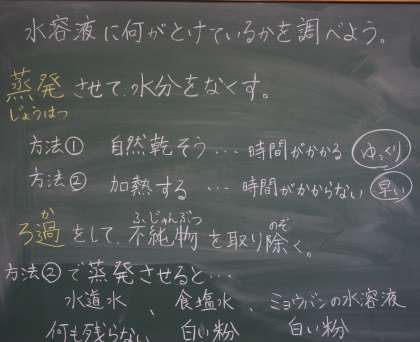 水溶液に何がとけているかを調べよう。
蒸発させて水分をなくす。
じょうはつ
方法① 自然乾そう…時間がかかる ゆっくり
方法② 加熱する …時間がかからない 早い
か ふじゅんぶつ のぞ
ろ過をして、不純物を取り除く。
方法②で蒸発させると…
水道水 、 食塩水 、 ミョウバンの水溶液
何も残らない 白い粉 白い粉